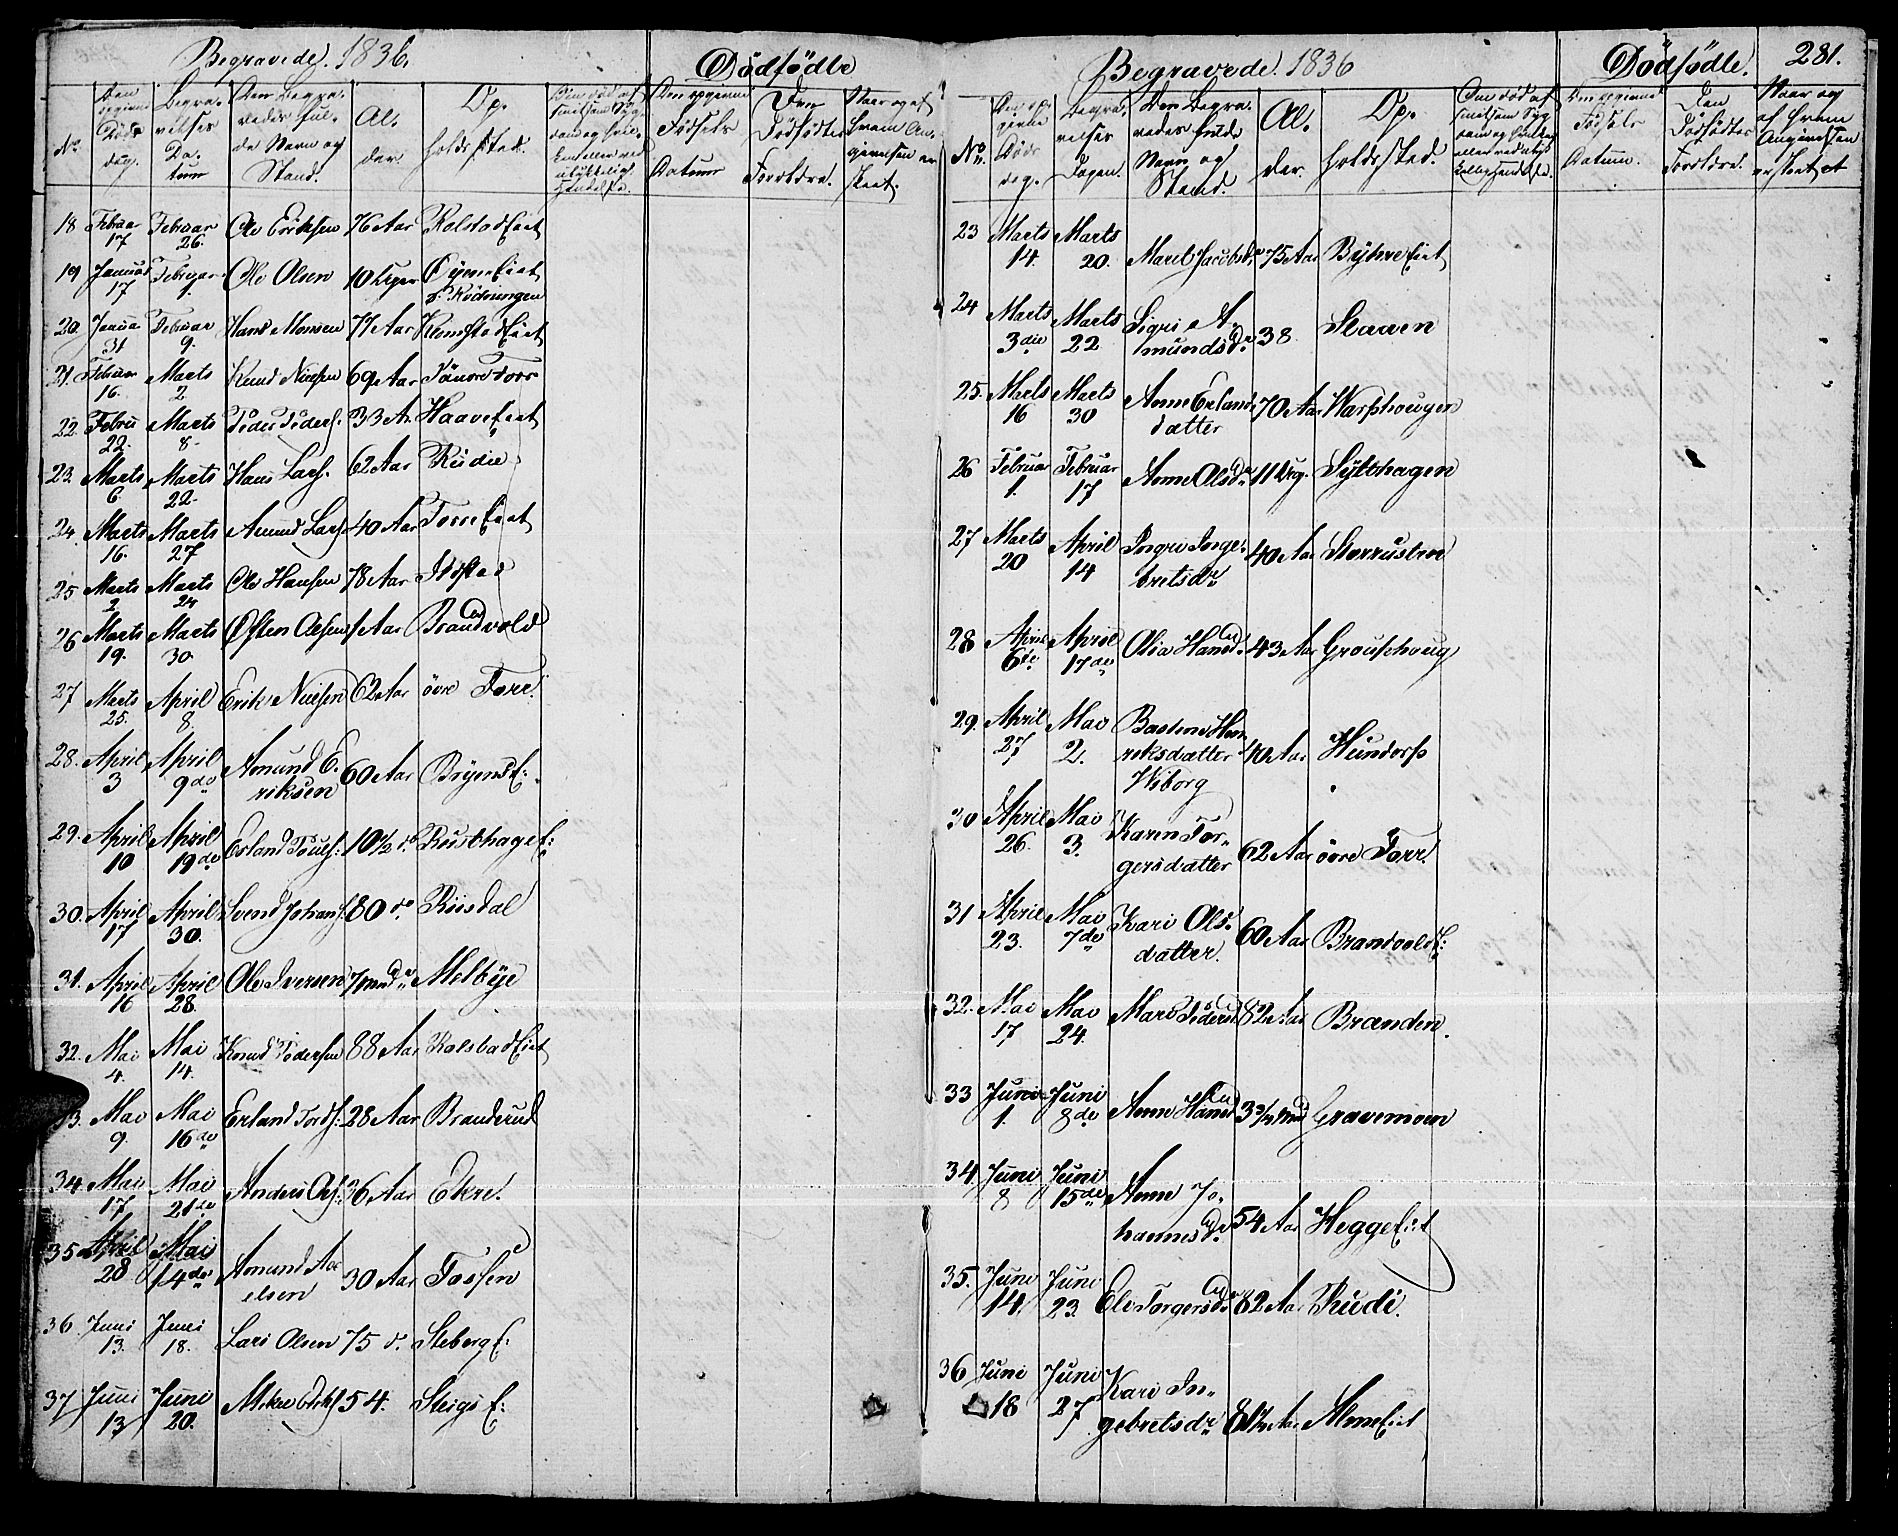 Begravede. 1836. Dödfödte
No. Den opgivne Döds dag. Begravelses Datum Den Begravedes fulde Navn og Stand. Alder. Opholdssted. Den opgivne Födsels Datum Den Dödfödtes Forældre. Naar og af hvem Angivelsen er skeet.
18 Februar 17 Februar 26. Ole Eriksen 76 Aar Kolstad Eiet
19 Januar 17 Februar Ole Olsen 10 Uger Öyum Eiet p. Rödningen
20. Janua 31 Februar 9. Hans Monsen 77 Aar Kemstad Eiet
21. Februar 16. Marts 2 Knud Nielsen 69 Aar Torr
22. Febru 22. Marts 8. Peder Peders. 33 A. Haave Eiet
23. Marts 6 Marts 22. Hans Lars. 62 Aar Rudie
24. Marts 16. Marts 27 Amund Lars. 40 Aar Torre Eiet
25 Marts 2 Marts 24 Ole Hansen 78 Aar
26 Marts 19. Marts 30. Östen Olsen 1 Aar Brandvold
27 Marts 25. April 8. Erik Nielsen 62 Aar övre Torr.
28. April 3 April 9de Amund Eriksen 60 Aar Bryens E:
29. April 10 April 19de Erland Pouls: 10½ d. Rusthage E:
30. April 17 April 30. Svend Johans. 80 d. Riisdal
31. April 16 April 28. Ole Iversen 7 Mnd. Melbye
32. Mai 4. Mai 14. Knud Pedersen 88 Aar Kolstad Eiet
33. Mai 9. Mai 16de Erland Tords: 28 Aar Branderud
34. Mai 17 Mai 21de Anders Ols: 36 Aar Ekre.
35 April 28 Mai 14de Amund Axelsen 30 Aar Fossen
36 Juni 13. Juni 18. Lars Olsen 75 d. Steberg E:
37 Juni 13 Juni 20. 54. Steigs E:
Begravede. 1836 Dödfödte. 281.
No. Den opgivne Döds dag. Begravelses Dagen. Den Begravedes fulde Navn og Stand. Alder. Opholdssted. Den opgivne Födsels Datum. Den Dödfödtes Forældre. Naar og af hvem Angivelsen er skeet
23 Marts 14. Marts 20. Marit Jacobsd. 75 Aar Byhre Eiet
24 Marts 3die Marts 22 Sigri Amundsd. 38 Slaaen
25. Marts 16 Marts 30 Anne Erlandsdatter 70 Aar Warphougen
26 Februar 1. Februar 17 Anne Olsdr 11 Ug. Sylthagen
27 Marts 20 April 14 Ingri Ingebretsdr 40 Aar Storrusten
28 April 6te April 17de Olia Hansd. 43 Aar Grouphoug
29. April 27 Mai 2. Bastine Henriksdatter Wiborg 40 Aar Hundorp
30 April 26. Mai 3. Karen Torgersdatter 62 Aar övre Torr.
31 April 23. Mai 7de Kari Olsdatter. 60 Aar Brandvold E:
32. Mai 17 Mai 24. Mari Pedersd. 82 Aar Brænden.
33 Juni 1. Juni 8de Anne Hansd. 3¾ Mnd Gravemoen
34 Juni 8 Juni 15de Anne Johannesd. 54 Aar Hegge Eiet
35. Juni 14. Juni 23 Eli Torgersd. 82 Aar Rudi.
36 Juni 18 Juni 27 Kari Ingebretsdr 81½ Aar Alme Eiet